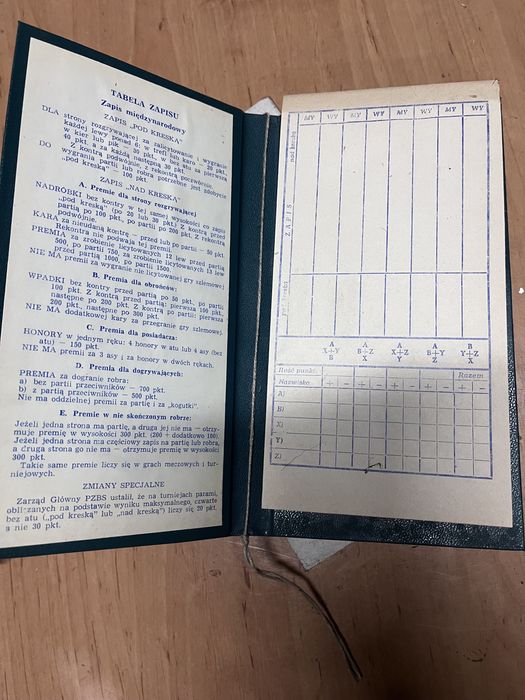 TABELA ZAPISU
Zapis międzynarodowy
ZAPIS „POD KRESKĄ"
DLA strony rozgrywającej za zalicytowanie i wygranie
każdej lewy ponad 6: w trefl lub karo — 20 pkt,
w kier lub pik — 30 pkt, w bez atu za pierwszą
40 pkt, a za każdą następną 30 pkt.
Z kontrą podwójnie, z rekontrą poczwórnie.
DO wygrania partii lub robra potrzebne jest zdobycie
„pod kreską" — 100 pkt.
ZAPIS „NAD KRESKĄ"
A. Premie dla strony rozgrywającej
NADRÓBKI bez kontry w tej samej wysokości co zapis
„pod kreską" (po 20 lub 30 pkt.) Z kontrą przed
partią po 100 pkt, po partii po 200 pkt; z rekontrą
podwójnie.
KARA za nieudaną kontrę — przed lub po partii — 50 pkt.
Rekontra nie podwaja tej premii.
PREMIA za zrobienie licytowanych 12 lew przed partią
500, po partii 750, za zrobienie licytowanych 13 lew
przed partią 1000, po partii 1500.
NIE MA premii za wygranie nie licytowanej gry szlemowej.
B. Premia dla obrońców:
WPADKI bez kontry przed partią po 50 pkt, po partii
100 pkt. Z kontrą przed partią: pierwsza 100 pkt,
następne po 200 pkt. Z kontrą po partii: pierwsza
200 pkt, następne po 300 pkt.
NIE MA dodatkowej kary za przegranie gry szlemowej.
C. Premia dla posiadacza:
HONORY w jednym ręku: 4 honory w atu lub 4 asy (bez
atu) — 150 pkt.
NIE MA premii za 3 asy i za honory w dwóch rękach.
D. Premia dla dogrywających:
PREMIA za dogranie robra:
a) bez partii przeciwników — 700 pkt.
b) z partią przeciwników — 500 pkt.
Nie ma oddzielnej premii za partię i za „kogutki".
E. Premie w nie skończonym robrze:
Jeżeli jedna strona ma partię, a druga jej nie ma — otrzy-
muje premię w wysokości 300 pkt. (200 + dodatkowo 100).
Jeżeli jedna strona ma częściowy zapis na partię lub robra,
a druga strona go nie ma — otrzymuje premię w wysokości
300 pkt.
Takie same premie liczy się w grach meczowych i tur-
niejowych.
ZMIANY SPECJALNE
Zarząd Główny PZBS ustalił, że na turniejach parami,
obliczanych na podstawie wyniku maksymalnego, czwarte
bez atu („pod kreską" lub „nad kreską") liczy się 20 pkt,
a nie 30 pkt.
MY WY MY WY MY WY MY WY
pod kreską
ZAPIS
A A A A B
X+Y B+Z X+Z B+Y Y+Z
B X Y Z X
Ilość punkt. Razem
Nazwisko + − + − + − + − + − + −
A)
B)
X)
Y)
Z)